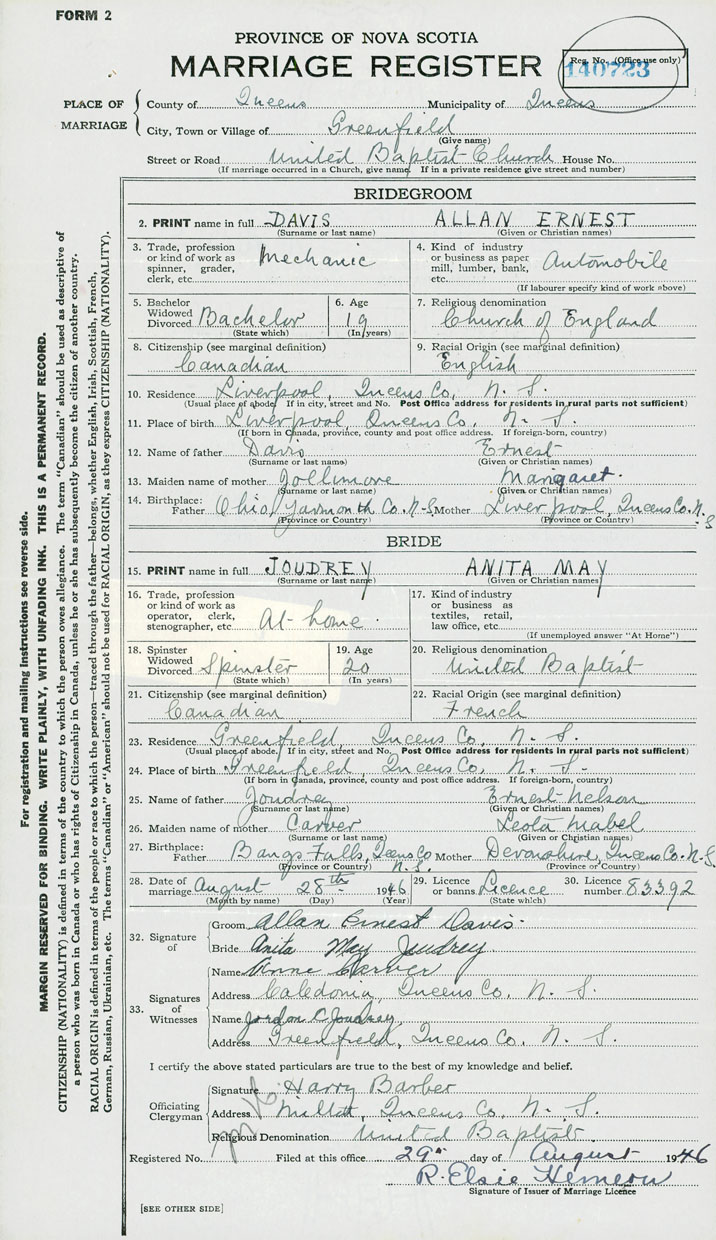 FORM 2
PROVINCE OF NOVA SCOTIA
MARRIAGE REGISTER
Reg. No. (Office use only)
140723
PLACE OF MARRIAGE
County of Queens Municipality of Queens
City, Town or Village of Greenfield
(Give name)
Street or Road United Baptist Church House No.
(If marriage occurred in a Church, give name. If in a private residence give street and number)
BRIDEGROOM
2. PRINT name in full DAVIS ALLAN ERNEST
(Surname or last name) (Given or Christian names)
3. Trade, profession or kind of work as spinner, grader, clerk, etc. Mechanic
4. Kind of industry or business as paper mill, lumber, bank, etc. Automobile
(If labourer specify kind of work above)
5. Bachelor Widowed Divorced Bachelor
(State which)
6. Age 19
(In years)
7. Religious denomination
Church of England
8. Citizenship (see marginal definition)
Canadian
9. Racial Origin (see marginal definition)
English
10. Residence Liverpool, Queens Co, N. S.
(Usual place of abode. If in city, street and No. Post Office address for residents in rural parts not sufficient)
11. Place of birth Liverpool, Queens Co, N. S.
(If born in Canada, province, county and post office address. If foreign-born, country)
12. Name of father Davis Ernest
(Surname or last name) (Given or Christian names)
13. Maiden name of mother Jollimore Margaret.
(Surname or last name) (Given or Christian names)
14. Birthplace: Father Ohio, Yarmouth Co. N-S. Mother Liverpool, Queens Co. N. S
(Province or Country) (Province or Country)
BRIDE
15. PRINT name in full JOUDREY ANITA MAY
(Surname or last name) (Given or Christian names)
16. Trade, profession or kind of work as operator, clerk, stenographer, etc. At home.
17. Kind of industry or business as textiles, retail, law office, etc.
(If unemployed answer "At Home")
18. Spinster Widowed Divorced Spinster
(State which)
19. Age 20
(In years)
20. Religious denomination
United Baptist
21. Citizenship (see marginal definition)
Canadian
22. Racial Origin (see marginal definition)
French
23. Residence Greenfield, Queens Co, N. S.
(Usual place of abode. If in city, street and No. Post Office address for residents in rural parts not sufficient)
24. Place of birth Greenfield, Queens Co, N. S.
(If born in Canada, province, county and post office address. If foreign-born, country)
25. Name of father Joudrey Ernest Nelson
(Surname or last name) (Given or Christian names)
26. Maiden name of mother Carver Leota Mabel
(Surname or last name) (Given or Christian names)
27. Birthplace: Father Bangs Falls, Queens Co N. S. Mother Devonshire, Queens Co. N. S.
(Province or Country) (Province or Country)
28. Date of marriage August 28th 1946
(Month by name) (Day) (Year)
29. Licence or banns Licence
(State which)
30. Licence number 83392
32. Signature of
Groom Allan Ernest Davis.
Bride Anita May Joudrey.
33. Signatures of Witnesses
Name Anne
Address Caledonia, Queens Co, N. S.
Name Jordon C Joudrey
Address Greenfield, Queens Co, N. S.
I certify the above stated particulars are true to the best of my knowledge and belief.
Officiating Clergyman
Signature Harry Barber
Address Queens Co, N. S.
Religious Denomination United Baptist
Registered No. Filed at this office 29th day of August 1946
R. Elsie Hemeon
Signature of Issuer of Marriage Licence
[SEE OTHER SIDE]
For registration and mailing instructions see reverse side.
MARGIN RESERVED FOR BINDING. WRITE PLAINLY, WITH UNFADING INK. THIS IS A PERMANENT RECORD.
CITIZENSHIP (NATIONALITY) is defined in terms of the country to which the person owes allegiance. The term "Canadian" should be used as descriptive of
a person who was born in Canada or who has rights of Citizenship in Canada, unless he or she has subsequently become the citizen of another country.
RACIAL ORIGIN is defined in terms of the people or race to which the person—traced through the father—belongs, whether English, Irish, Scottish, French,
German, Russian, Ukrainian, etc. The terms "Canadian" or "American" should not be used for RACIAL ORIGIN, as they express CITIZENSHIP (NATIONALITY).